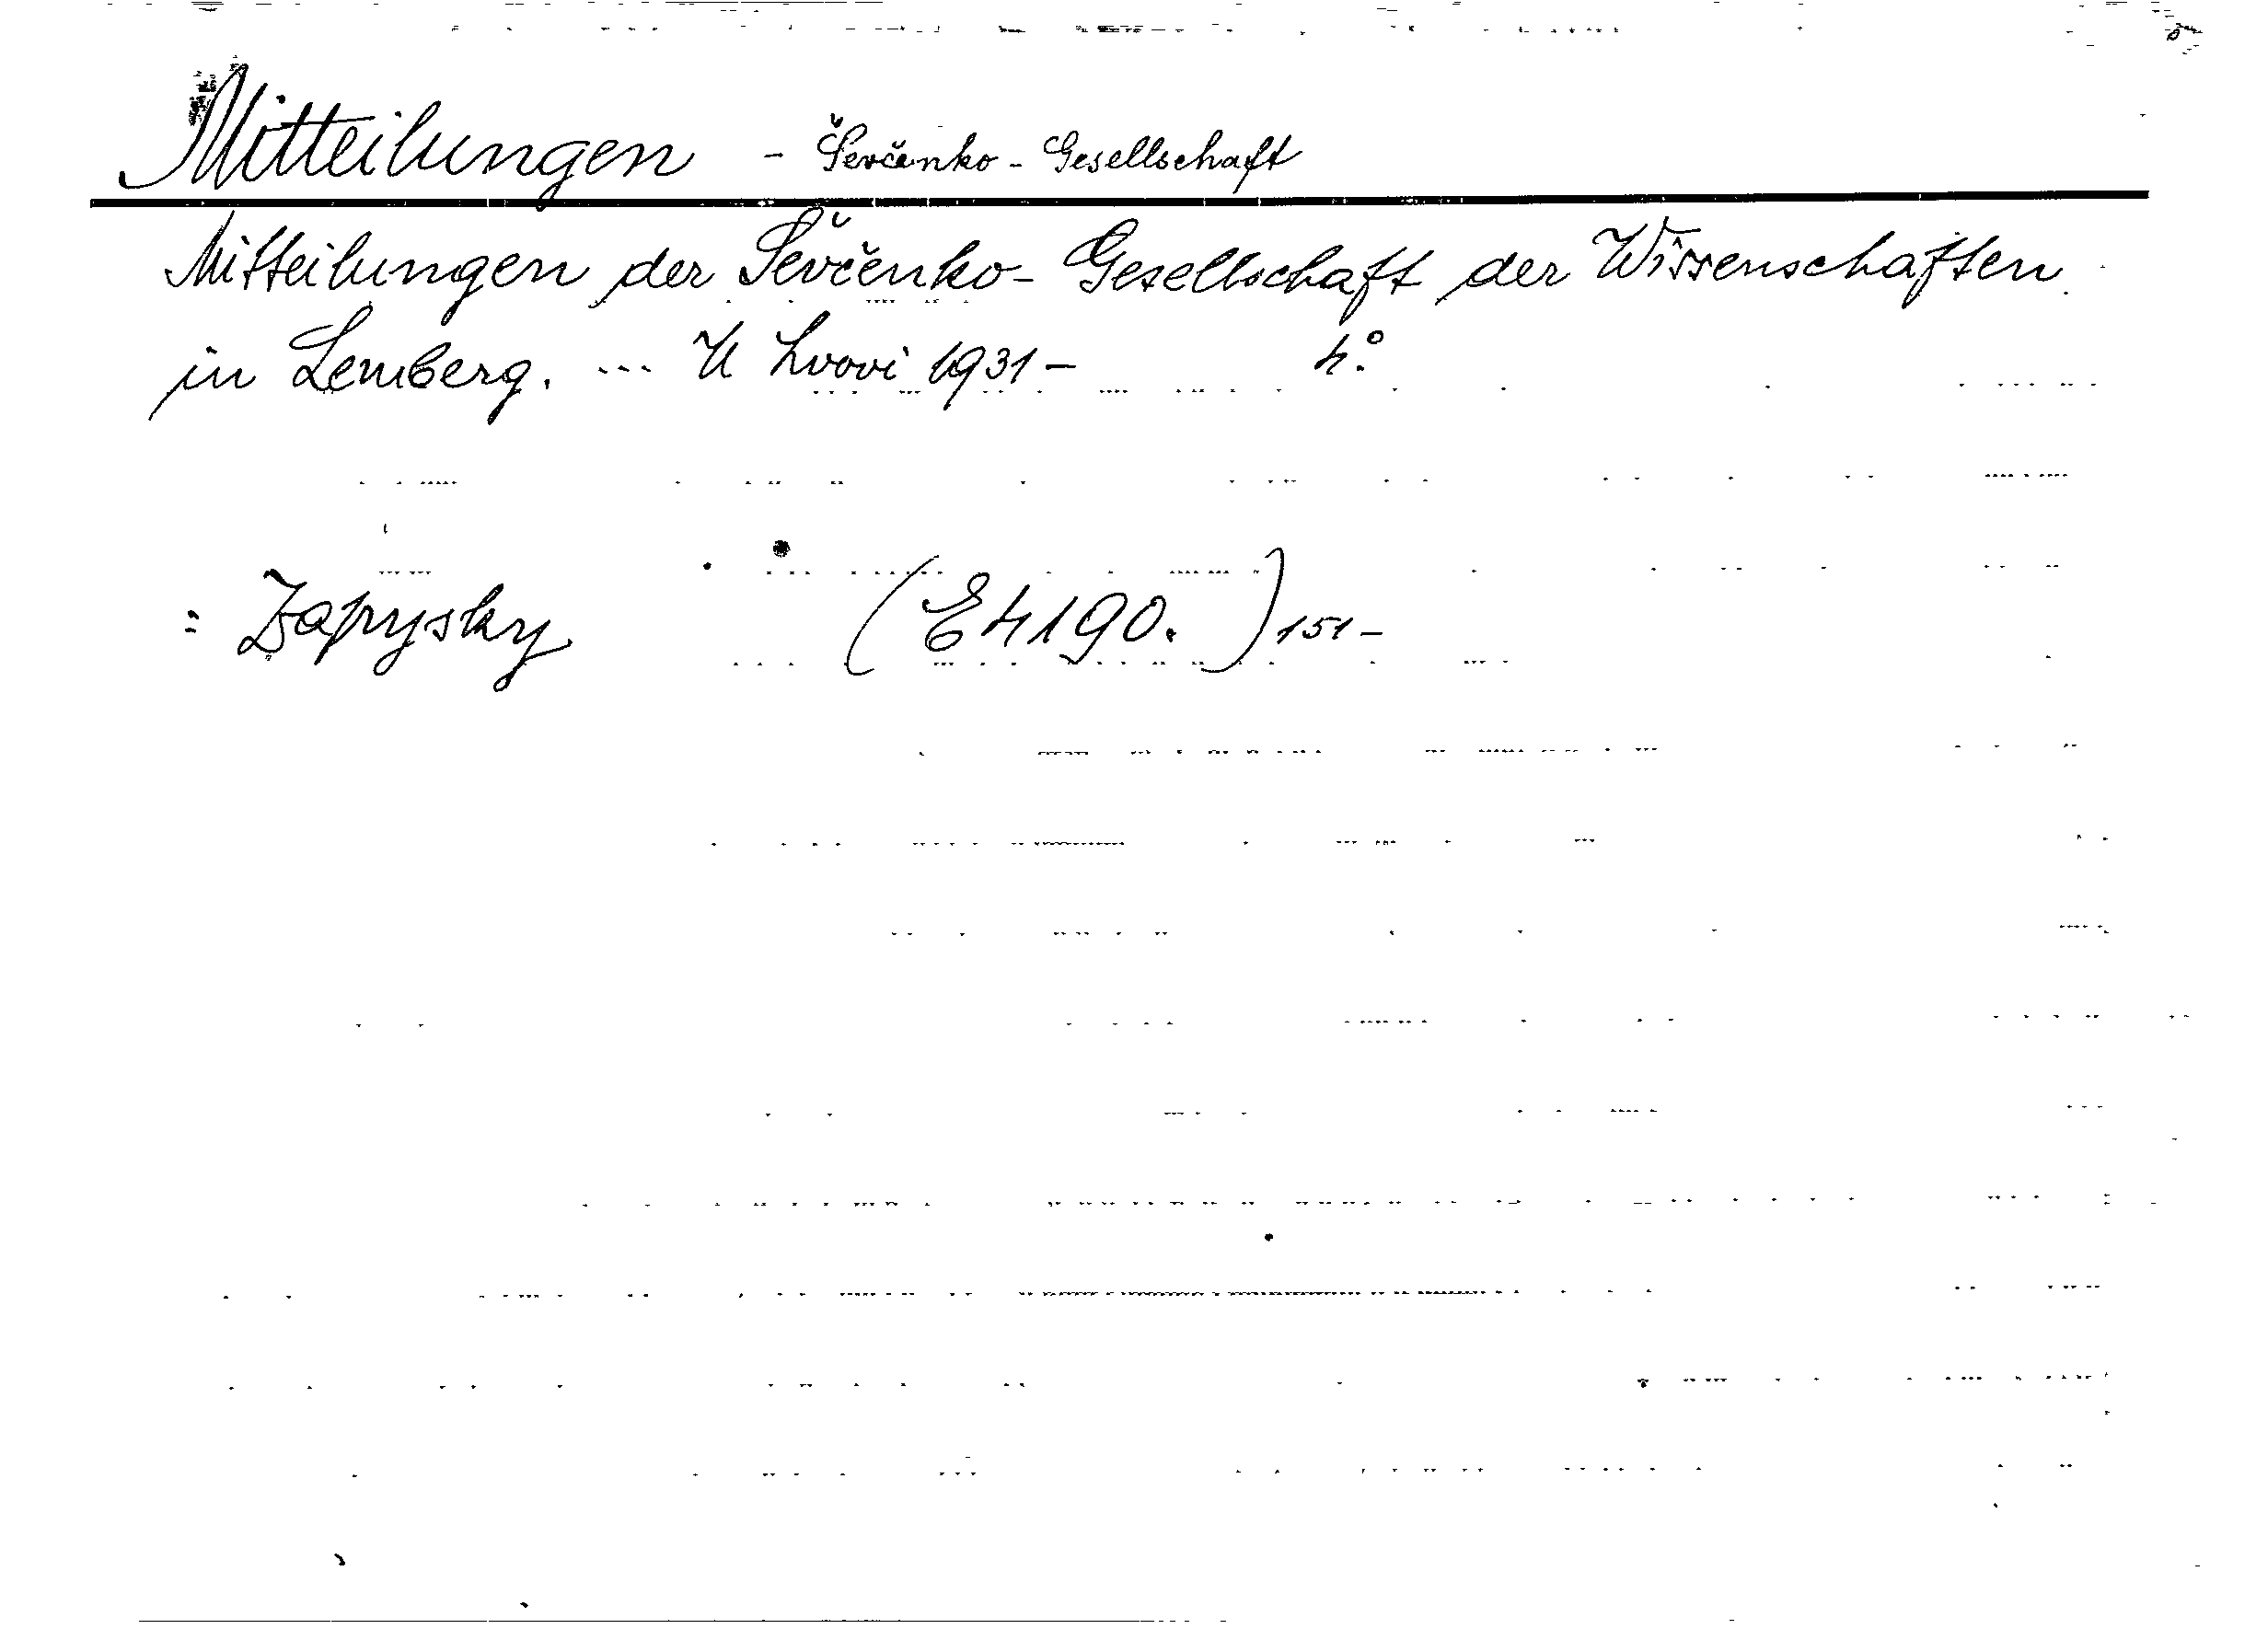 Mitteilungen - Ševčenko - Gesellschaft
Mitteilungen der Ševčenko- Gesellschaft der Wissenschaften
in Lemberg. ... U Lvovi 1931 - 4°.
= Zapysky (E4190.) 151 -